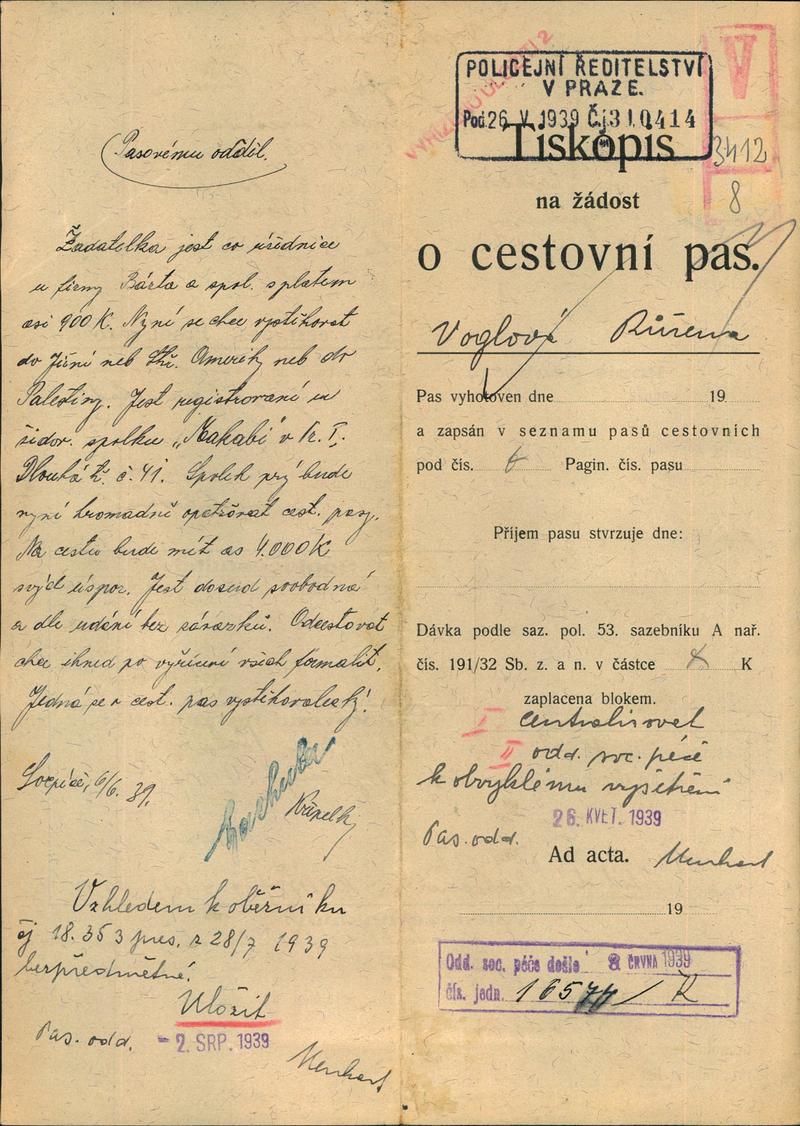 Pasovému odděl.
Žadatelka jest co úřednice
u firmy Bárta a spol. s platem
asi 900 K. Nyní se chce vystěhovat
do Jižní neb Stř. Ameriky neb do
Palestiny. Jest registrovaná u
židov. spolku „Makabi" v Pr. I.
Dlouhá tř. č. 41. Spolek prý bude
nyní hromadně opatřovat cest. pasy.
Na cestu bude mít as 4.000 K
svých úspor. Jest dosud svobodná
a dle udání bez závazků. Odcestovat
chce ihned po vyřízení všech formalit.
Jedná se o cest. pas vystěhovalecký!
6/6. 39.
Vzhledem k oběžníku
čj 18.353 pres. z 28/7 1939
bezpředmětné.
Uložit
Pas. odd. - 2. SRP. 1939
Menhart
POLICEJNÍ ŘEDITELSTVÍ
V PRAZE.
Pod 26 V. 1939 Čj 310414
V
3412
8
Tiskopis
na žádost
o cestovní pas.
Voglová Růžena
Pas vyhotoven dne 19
a zapsán v seznamu pasů cestovních
pod čís. Pagin. čís. pasu
Příjem pasu stvrzuje dne:
Dávka podle saz. pol. 53. sazebníku A nař.
čís. 191/32 Sb. z. a n. v částce K
zaplacena blokem.
I centralisovat
II odd. soc. péče
k obvyklému vyšetření
26. KVĚT. 1939
Pas. odd.
Ad acta. Menhart
19
Odd. soc. péče došlo 8 ČRVNA 1939
čís. jedn. 16577/K